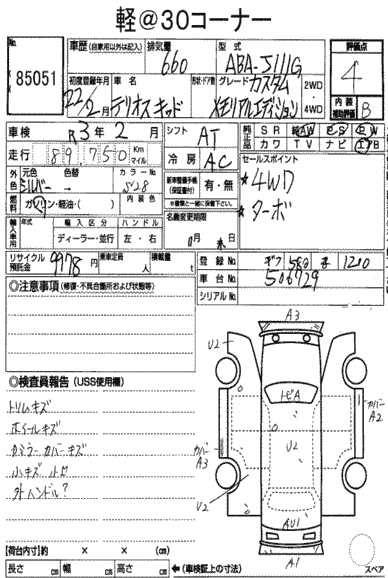 軽@30コーナー
No.
85051
車歴 (自家用以外は記入)
排気量
660
型式
ABA-J111G
評価点
4
内装補助評価
B
初度登録年月
22/2月
車名
テリオスキッド
形状・ドア数
グレード
カスタム
メモリアルエディション
2WD
4WD
車検
R3年2月
シフト
AT
純正品
SR 純AW PS PW
カワ TV ナビ エアB
走行
89,750
Km
マイル
冷房
AC
セールスポイント
★4WD
★ターボ
外色
元色
シルバー
色替
カラーNo
S28
新車整備手帳(保証書付)
有・無
※書類と一緒に保管下さい。
燃料
ガソリン・軽油・( )
内装色
名義変更期限
月 日
輸入車用
年式
輸入区分
ディーラー・並行
ハンドル
左・右
リサイクル預託金
9978円
乗車定員
人
積載量
t
登録No.
ギフ 580 ま 1210
車台No.
506729
シリアルNo.
◎注意事項 (修復・不具合箇所および状態等)
A3
U2
トビA
カバー
A2
◎検査員報告 (USS使用欄)
トリムキズ
ホイールキズ
カバーキズ
小キズ
外ハンドル?
カバー
A3
U2
U2
AU1
A1
【荷台内寸】約 × × (cm)
長さ cm 幅 cm 高さ cm
(車検証上の寸法)
スペア